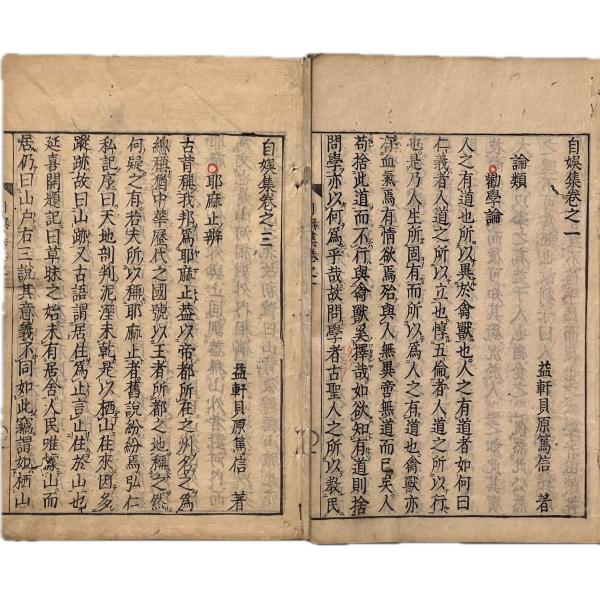 自娯集卷之一
益軒貝原篤信 著
論類
勸學論
人之有道也所以異於禽獸也人之有道者如何曰
仁義者人道之所以立也惇五倫者人道之所以行
也是乃人生所固有而所以為人之道也禽獸亦
有血氣焉有情欲焉殆與人無異啻無道而已矣人
苟捨此道而不行與禽獸奚擇哉如欲知有道則捨
問學亦以何為乎哉故問學者古聖人之所以教民
自娯集卷之三
益軒貝原篤信 著
耶麻止辨
古昔稱我邦為耶麻止蓋以帝都所在之州名之為
總稱猶中華歷代之國號以王者所都之地稱之然
何疑之有若夫所以稱耶麻止者舊說紛紛焉弘仁
私記序曰天地剖判泥溼未乾是以栖山往來因多
蹤跡故曰山跡又古語謂居住為止言止住於山也
延喜開題記曰草昧之始未有居舍人民唯據山而
居仍曰山戶右三說其意義不同如此竊謂如栖山